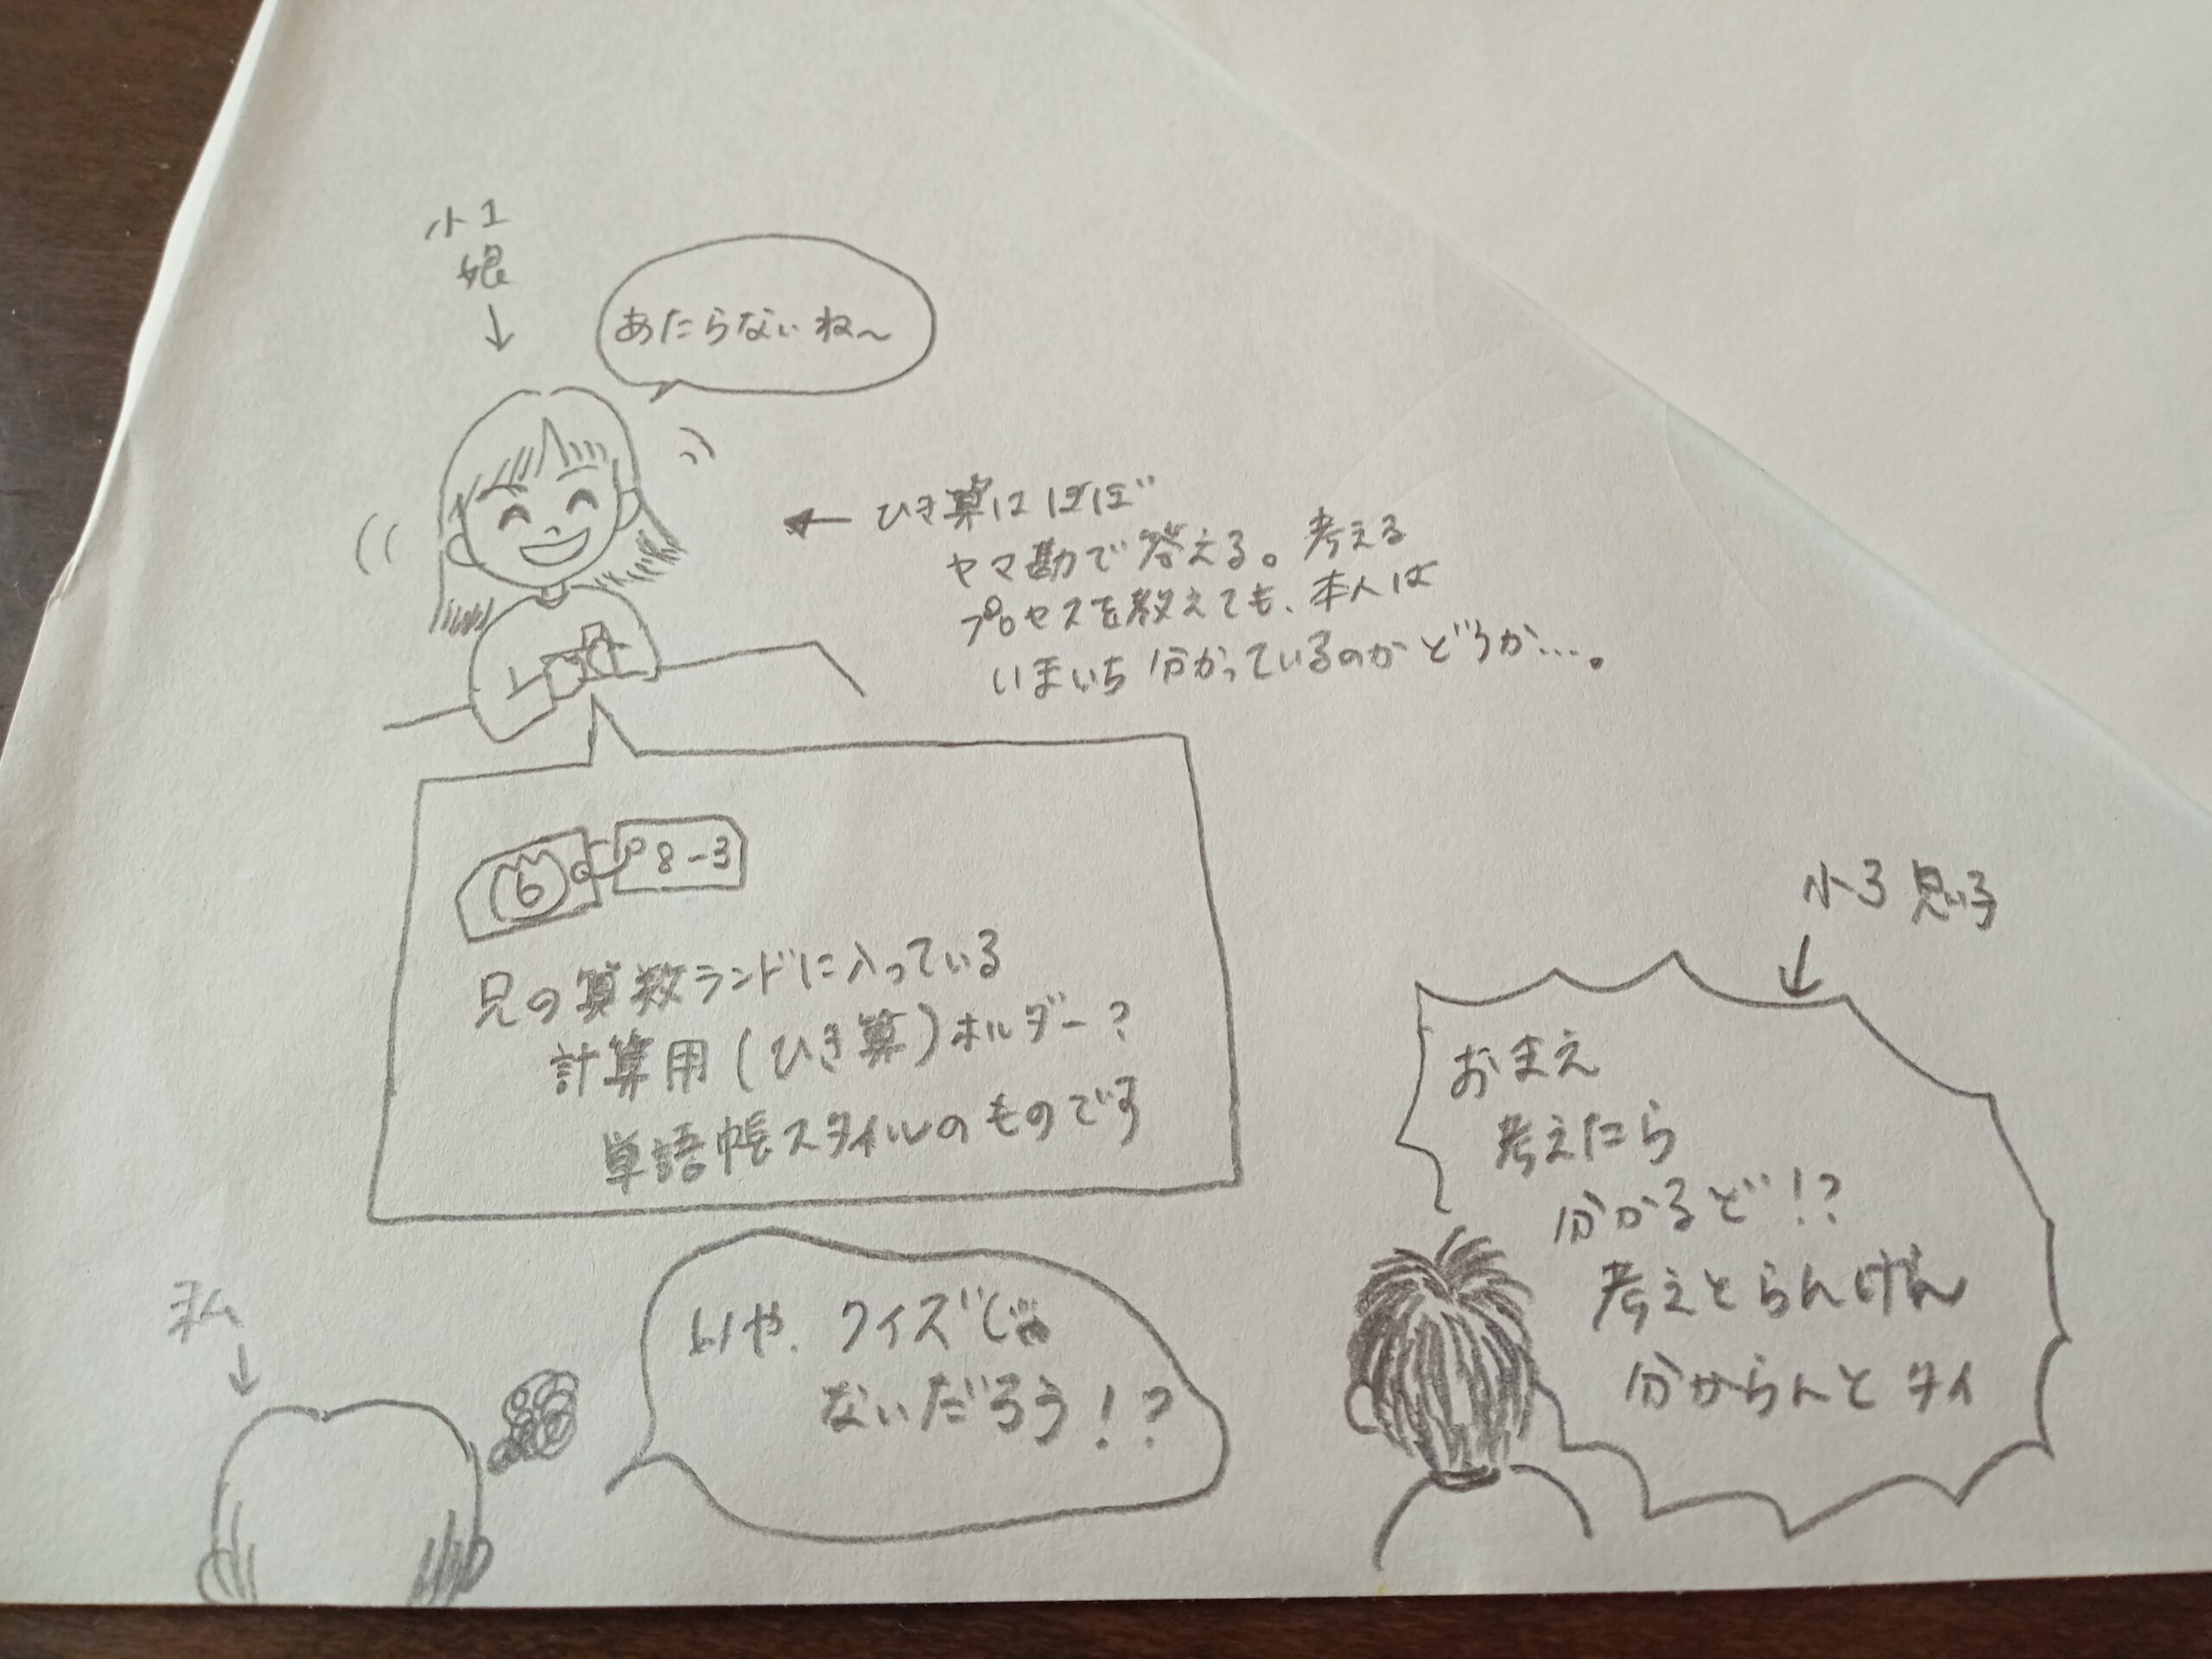 小1
娘
あたらないね～
ひき算はほぼ
ヤマ勘で答える。考える
プロセスを教えても、本人は
いまいち分かっているのかどうか…。
6
8-3
兄の算数ランドに入っている
計算用(ひき算)ホルダー?
単語帳スタイルのものです
小3 息子
おまえ
考えたら
分かるど!?
考えとらんけん
分からんとタイ
私
いや、クイズじゃ
ないだろう!?